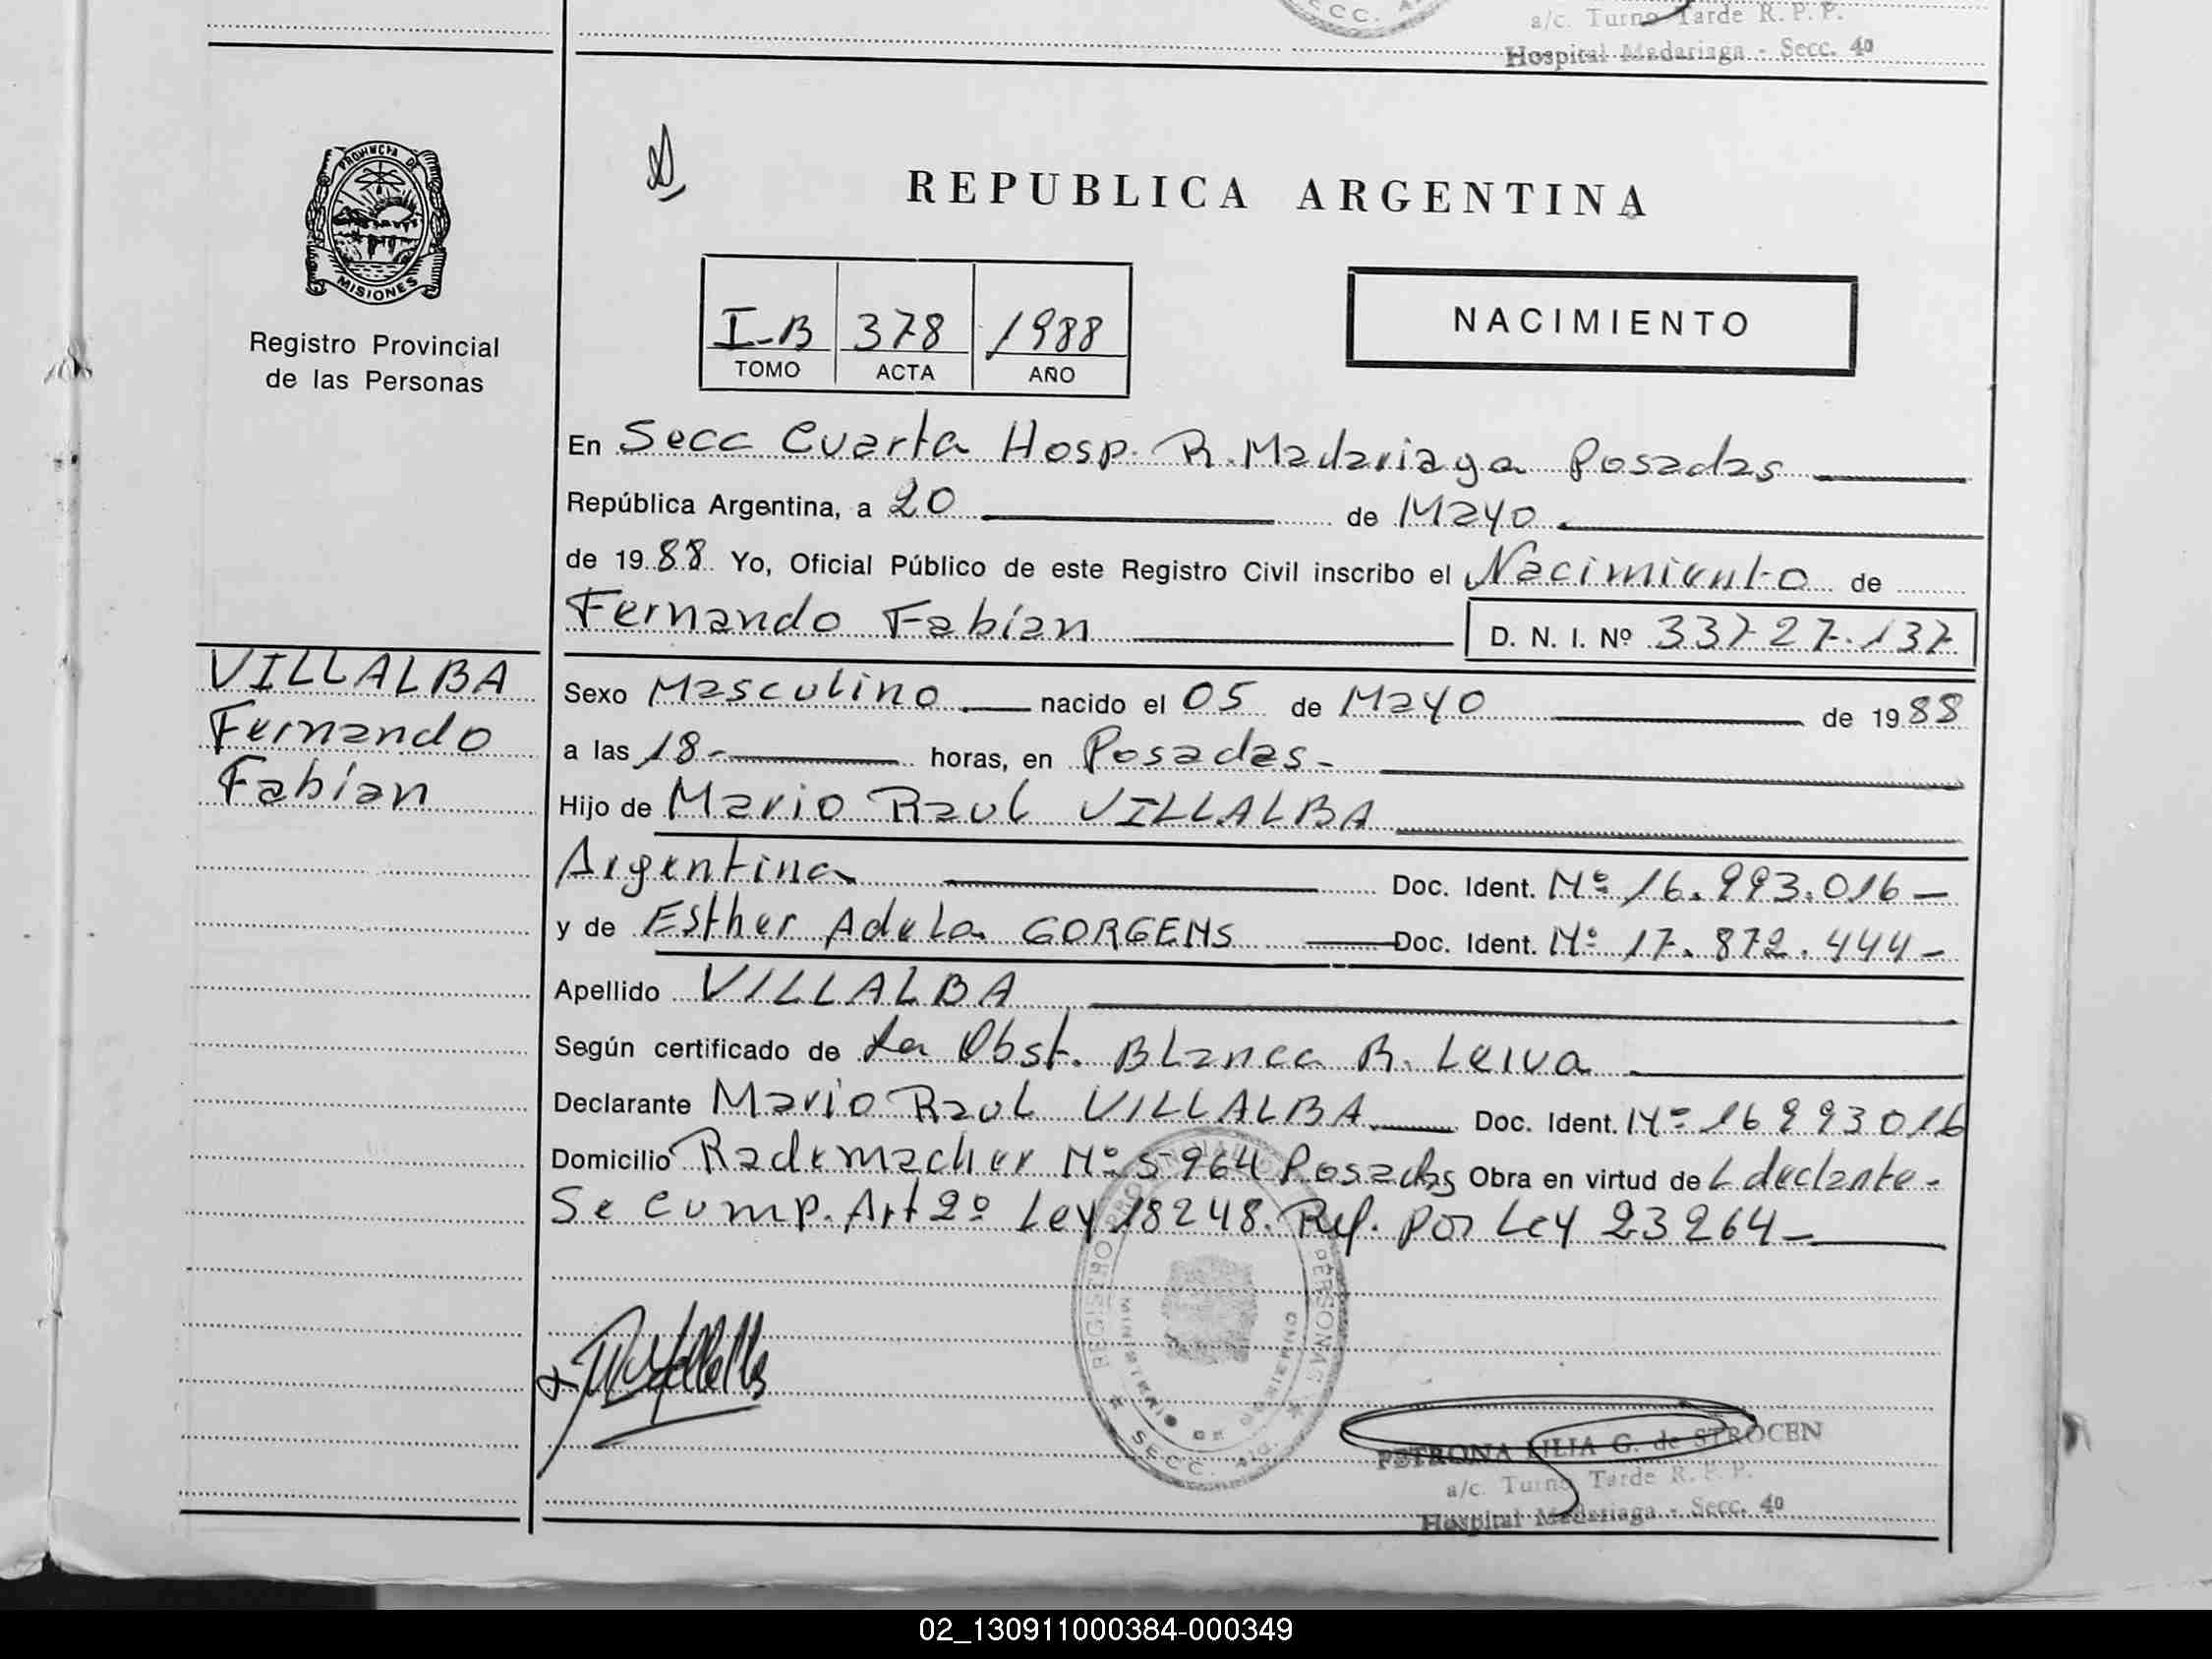 SECC.
a/c. Turno Tarde R. P. P.
Hospital Madariaga - Secc. 4a
PROVINCIA DE
MISIONES
Registro Provincial
de las Personas
REPUBLICA ARGENTINA
I-B 378 1988
TOMO ACTA AÑO
NACIMIENTO
En Secc Cuarta Hosp. R. Madariaga Posadas
República Argentina, a 20 de Mayo
de 1988 Yo, Oficial Público de este Registro Civil inscribo el Nacimiento de
Fernando Fabían D. N. I. Nº 33727.137
VILLALBA
Fernando
Fabían
Sexo Masculino nacido el 05 de Mayo de 1988
a las 18- horas, en Posadas-
Hijo de Mario Raul VILLALBA
Argentina Doc. Ident. Nº 16.993.016-
y de Esther Adela GORGENS Doc. Ident. Nº 17.872.444-
Apellido VILLALBA
Según certificado de La Obst. Blanca R. Leiva
Declarante Mario Raul VILLALBA Doc. Ident. Nº 16993016
Domicilio Rademacher Nº 5964 Posadas Obra en virtud de L declante-
Se Cump. Art 2º Ley 18248. Ref. por Ley 23264-
REGISTRO PERSONAS
MINISTERIO DE GOBIERNO
SECC. 4ta.
PETRONA LILIA G. de STROCEN
a/c. Turno Tarde R. P. P.
Hospital Madariaga - Secc. 4a
02_130911000384-000349